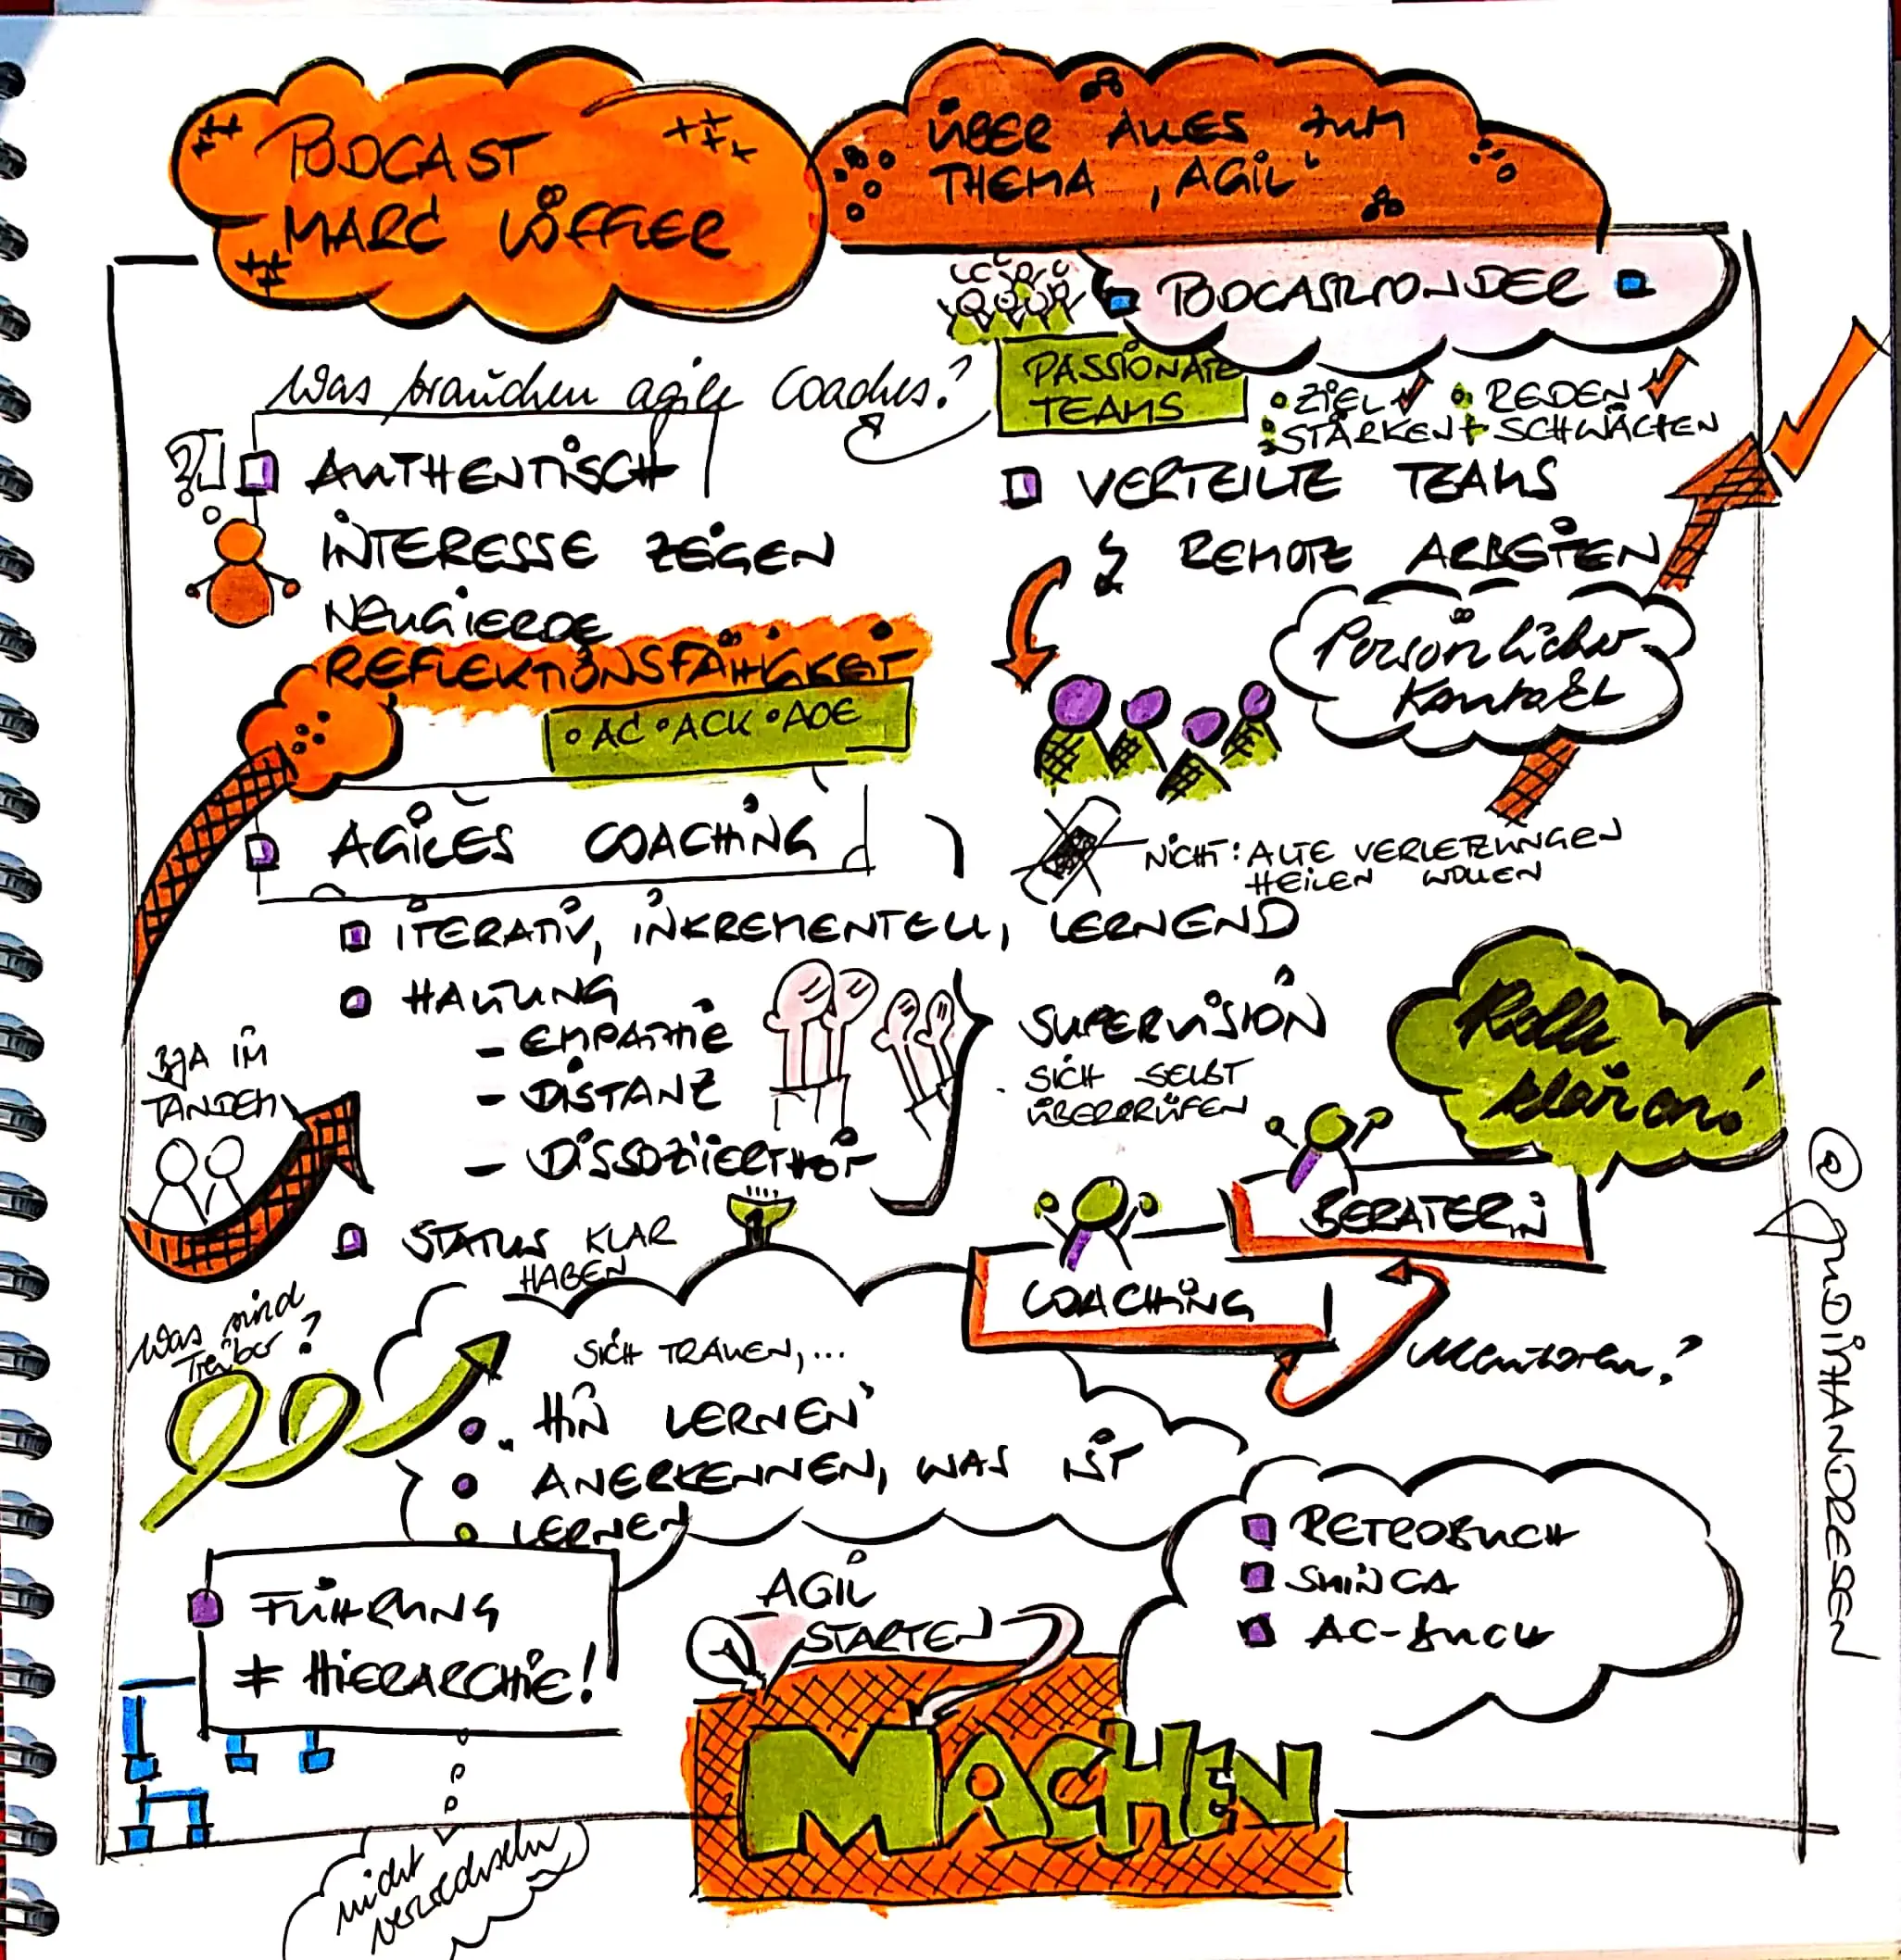 PODCAST
MARC LÖFFLER
ÜBER ALLES ZUM
THEMA ,AGIL'
PODCASTRONDER
Was brauchen agile Coaches?
PASSIONATE
TEAMS
ZIEL REDEN
STÄRKEN + SCHWÄCHEN
AUTHENTISCH
INTERESSE ZEIGEN
NEUGIERDE
REFLEKTIONSFÄHIGKEIT
• AC • ACK • AOE
VERTEILTE TEAMS
REMOTE ARBEITEN
Persönlicher
Kontakt
AGILES COACHING
NICHT: ALTE VERLETZUNGEN
HEILEN WOLLEN
ITERATIV, INKREMENTELL, LERNEND
HALTUNG
- EMPATHIE
- DISTANZ
- DISSOZIIERTHEIT
SUPERVISION
SICH SELBST
ÜBERPRÜFEN
Rolle
klären!
BJA IM
TANDEM
STATUS KLAR
HABEN
BERATER:IN
COACHING
Mentoren?
Was sind
Treiber?
SICH TRAUEN,...
„HIN LERNEN'
ANERKENNEN, WAS IST
LERNEN
FÜHRUNG
≠ HIERARCHIE!
nicht
verwechseln
AGIL
STARTEN
MACHEN
RETROBUCH
SHINCA
AC-BUCH
@JUDITHANDRESEN